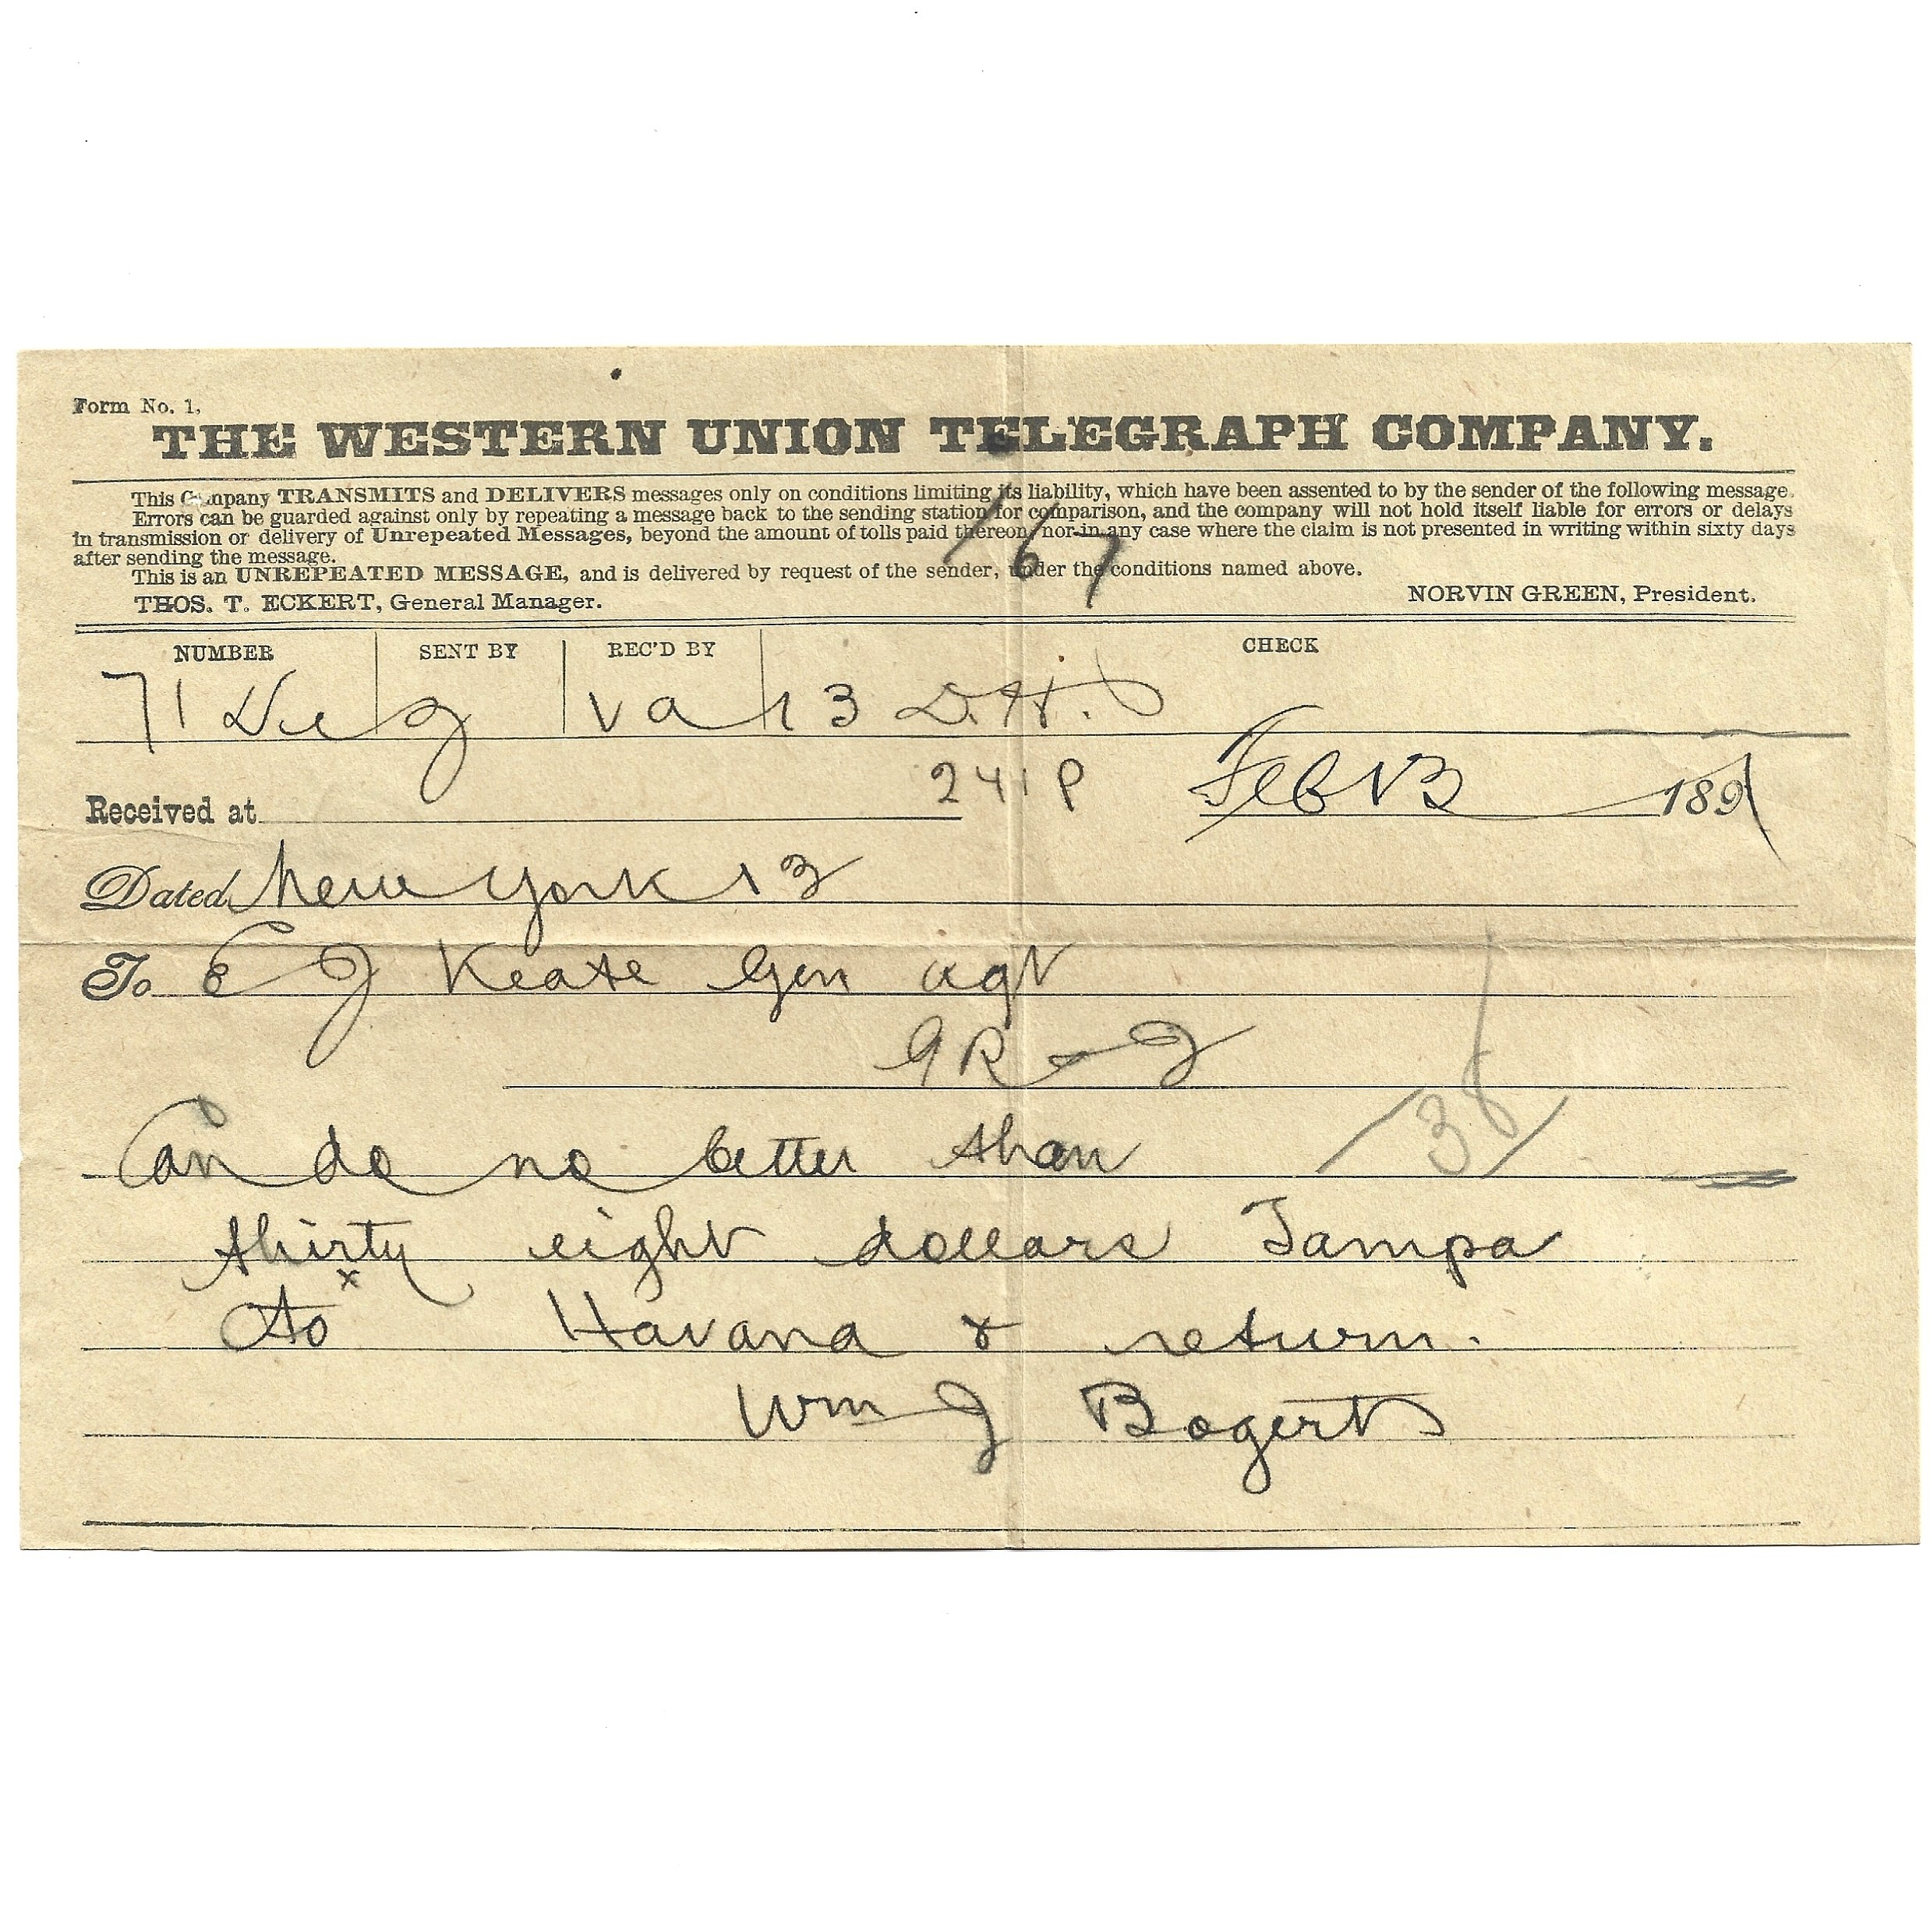 Form No. 1,
THE WESTERN UNION TELEGRAPH COMPANY.
This Company TRANSMITS and DELIVERS messages only on conditions limiting its liability, which have been assented to by the sender of the following message.
Errors can be guarded against only by repeating a message back to the sending station for comparison, and the company will not hold itself liable for errors or delays
in transmission or delivery of Unrepeated Messages, beyond the amount of tolls paid thereon, nor in any case where the claim is not presented in writing within sixty days
after sending the message.
167
This is an UNREPEATED MESSAGE, and is delivered by request of the sender, under the conditions named above.
THOS. T. ECKERT, General Manager. NORVIN GREEN, President.
NUMBER SENT BY REC'D BY CHECK
71 Va 13 D.H.
241P Feb 13 1891
Received at
Dated New York 13
To E J Keate Gen Agt
GR & I
Can do no better than 38
thirty eight dollars Tampa
x
to Havana & return.
Wm J Bogert